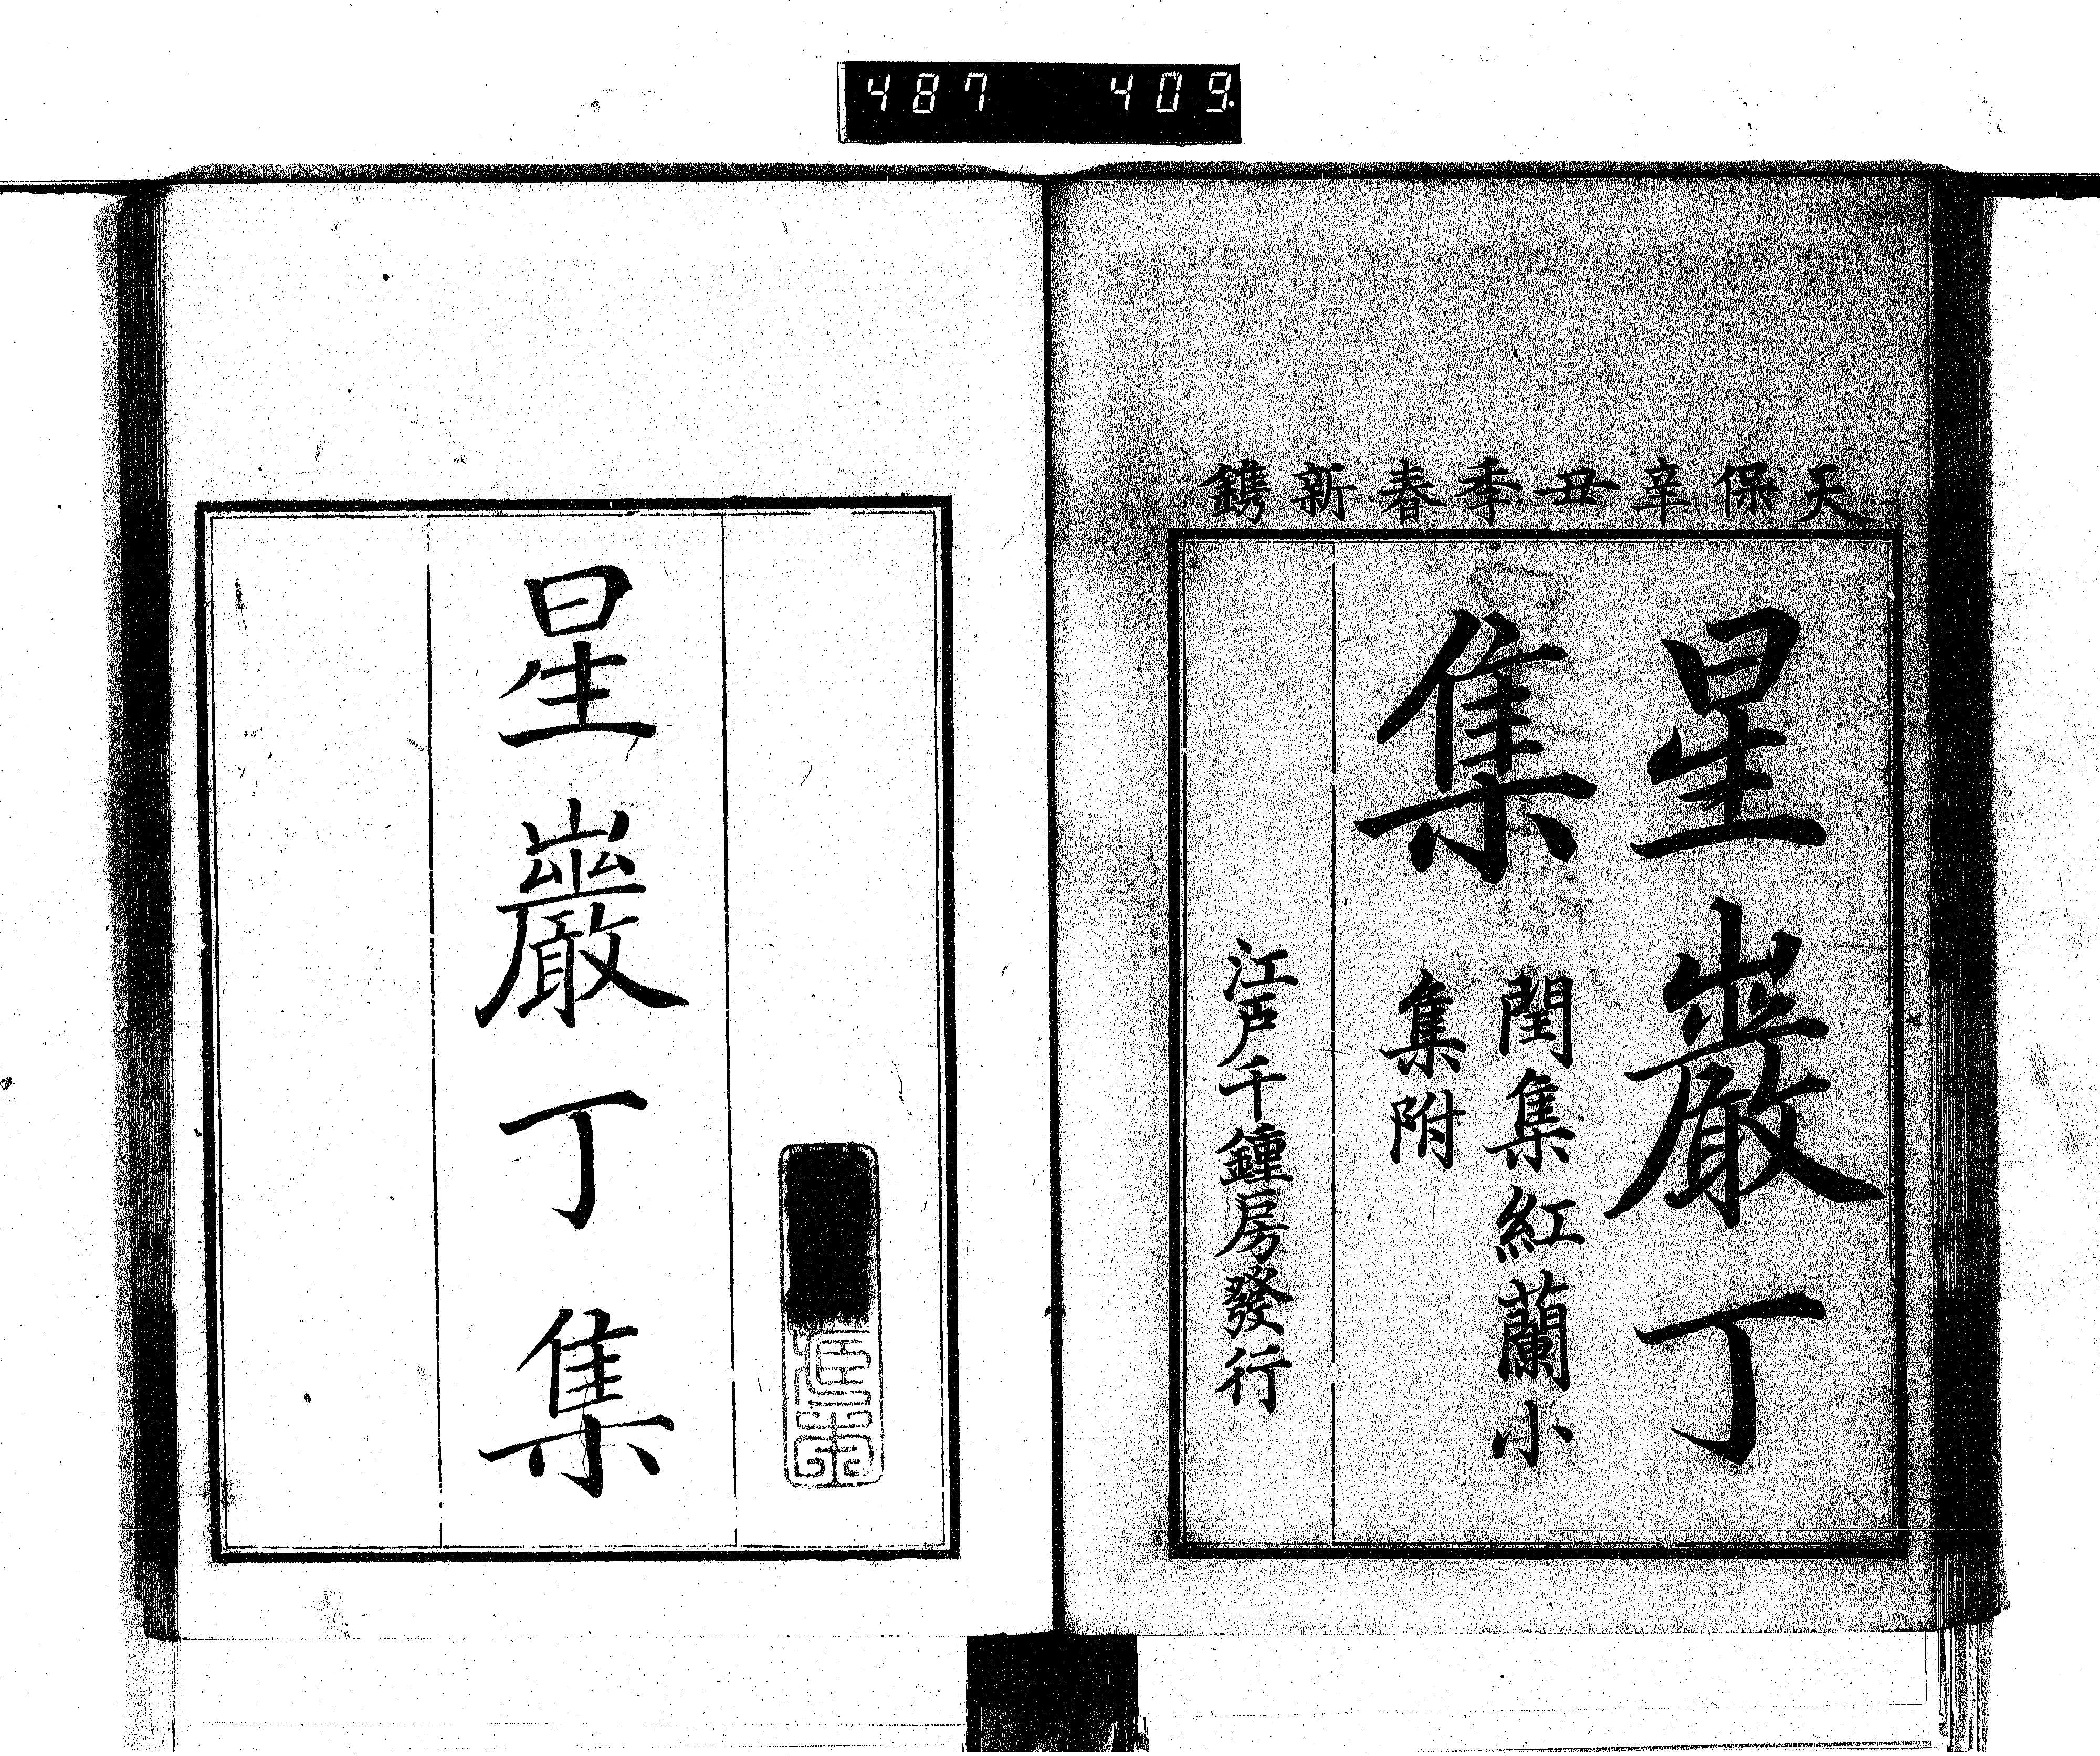 487 409
天保辛丑季春新鐫
星巖丁
集
閏集紅蘭小
集附
江戸千鍾房發行
星巖丁集